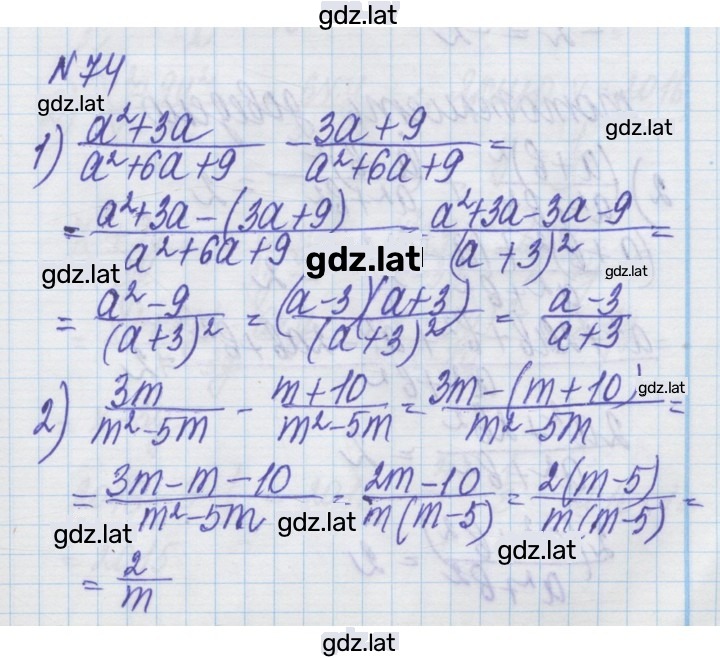 gdz.lat
N 74
gdz.lat
1) (a²+3a)/(a²+6a+9) - (3a+9)/(a²+6a+9) =
gdz.lat
= (a²+3a-(3a+9))/(a²+6a+9) = (a²+3a-3a-9)/(a+3)² =
gdz.lat gdz.lat gdz.lat
= (a²-9)/(a+3)² = ((a-3)(a+3))/(a+3)² = (a-3)/(a+3)
2) 3m/(m²-5m) - (m+10)/(m²-5m) = (3m-(m+10))/(m²-5m) =
gdz.lat
= (3m-m-10)/(m²-5m) = (2m-10)/(m(m-5)) = (2(m-5))/(m(m-5)) =
gdz.lat gdz.lat gdz.lat
= 2/m
gdz.lat